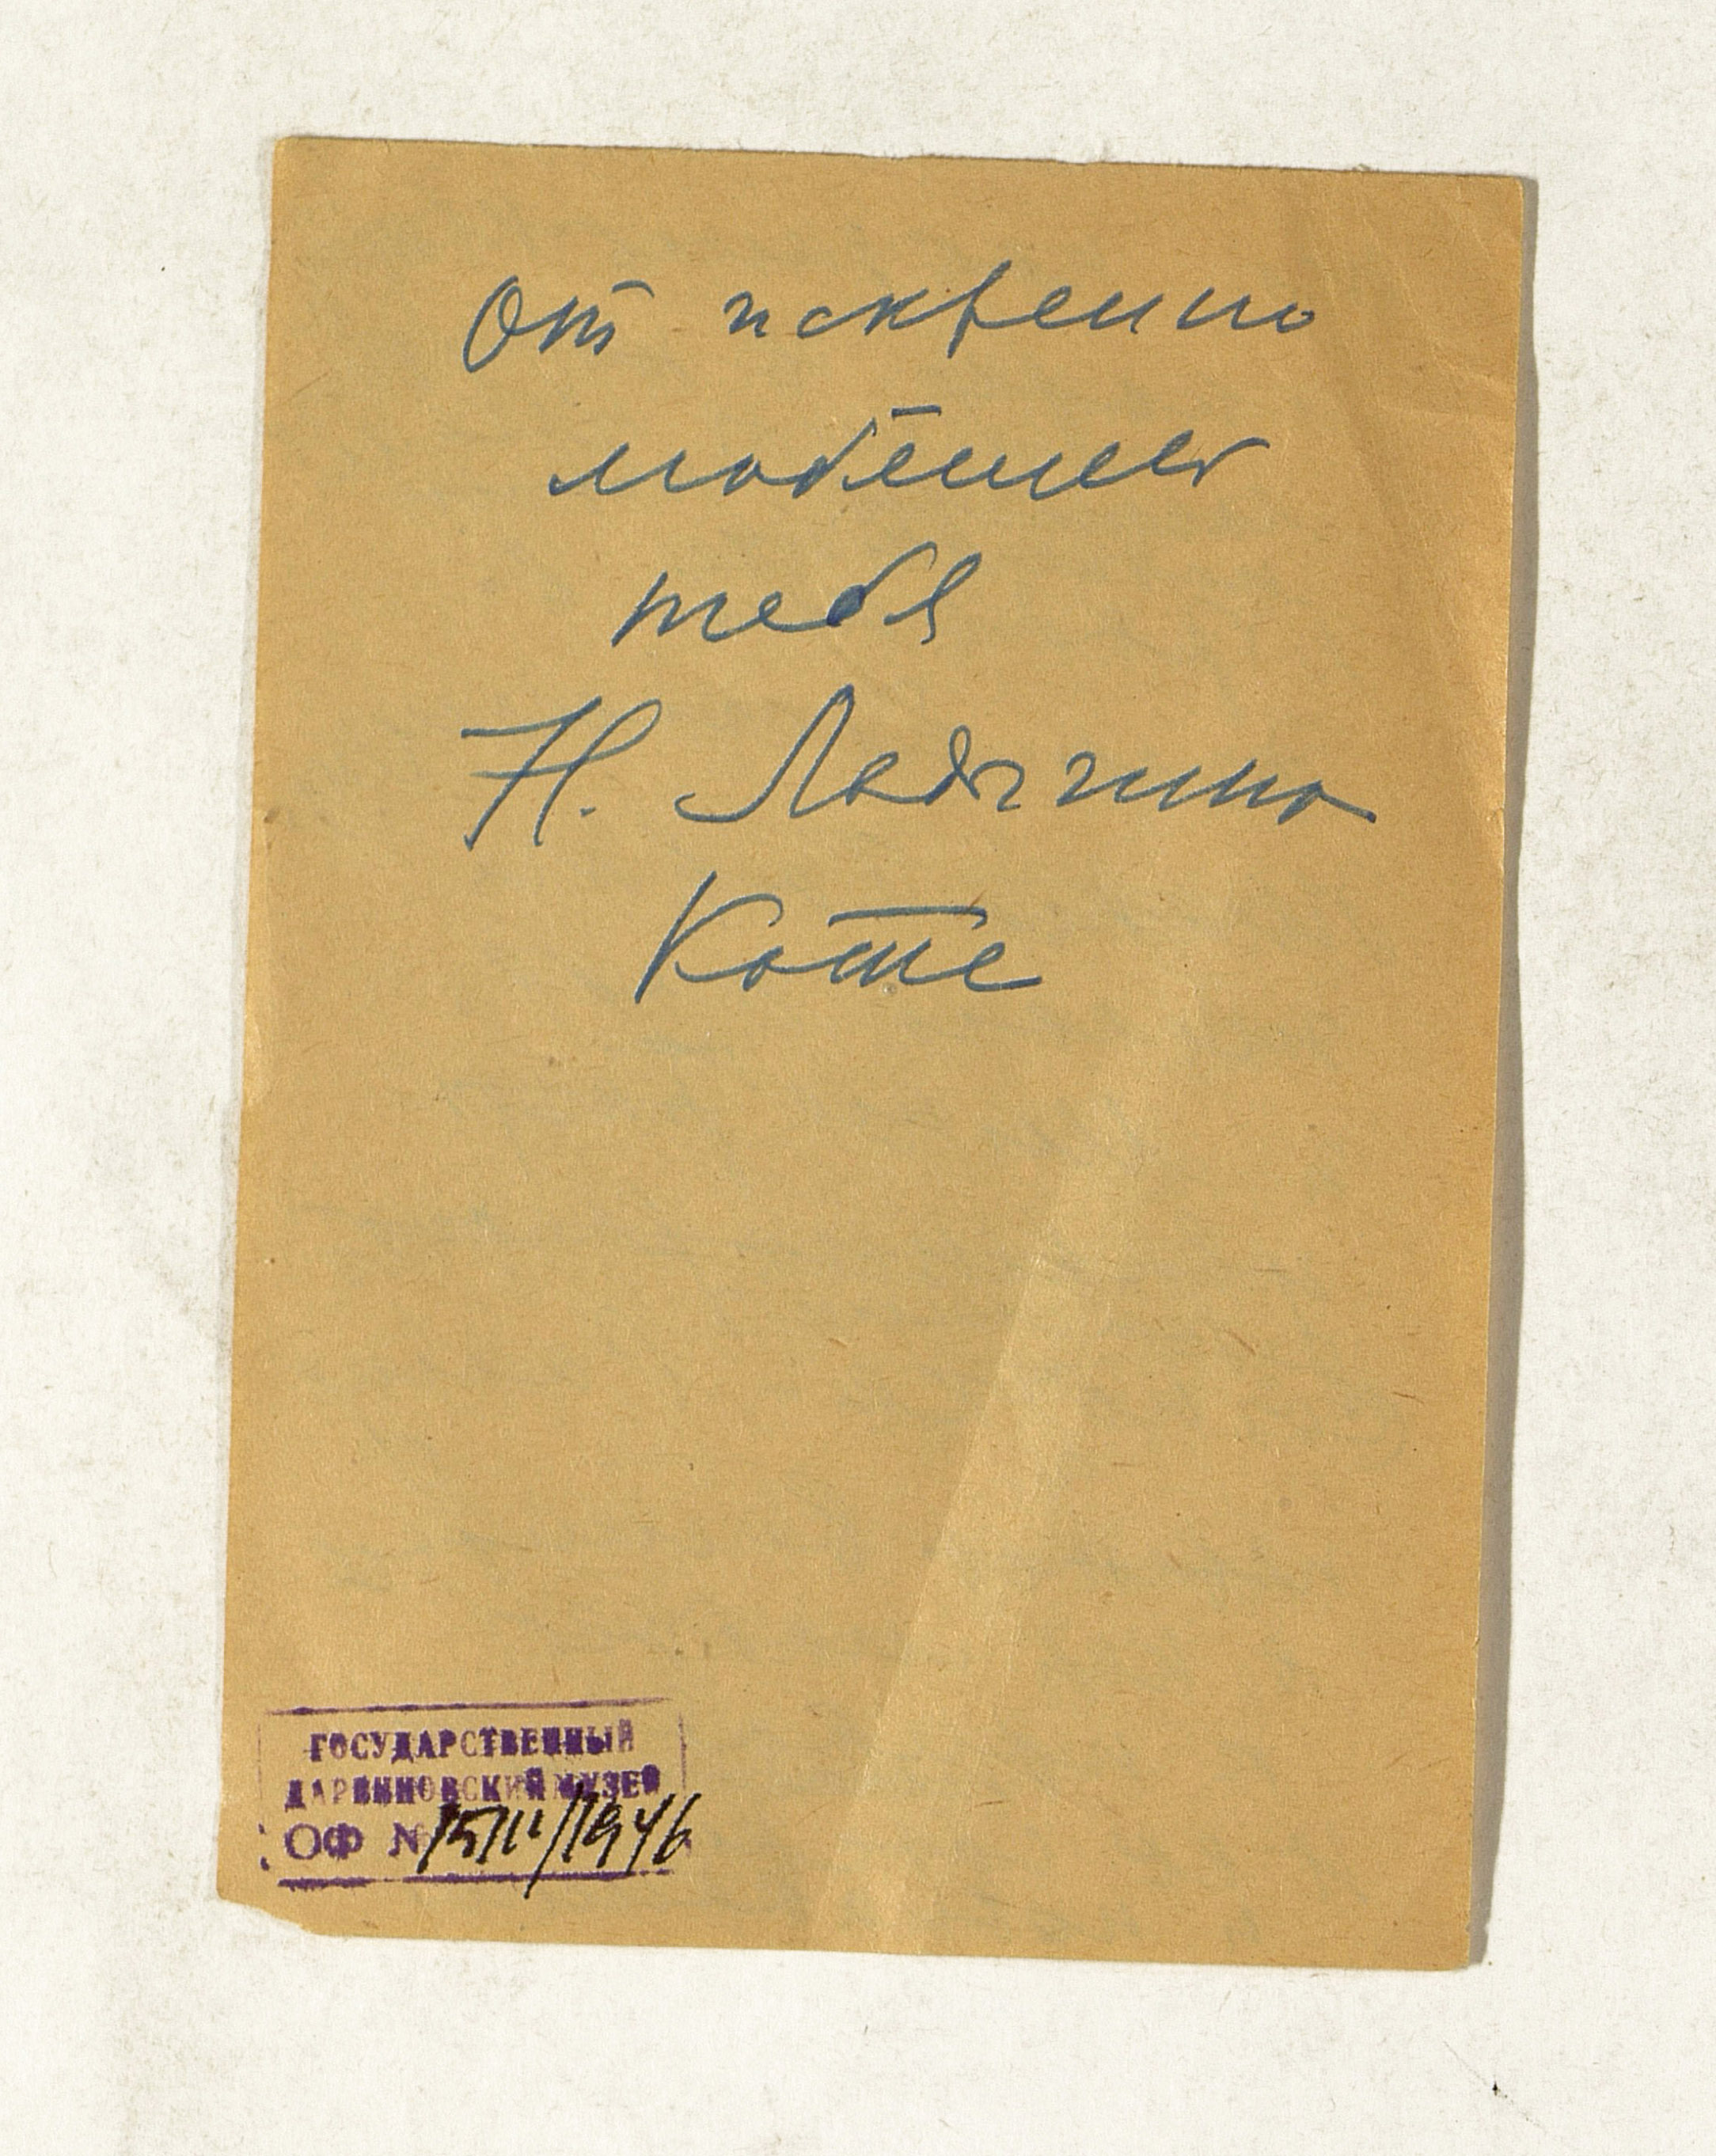 От искренно
любящей
тебя
Н. Ладыгина
Коте
ГОСУДАРСТВЕННЫЙ
ДАРВИНОВСКИЙ МУЗЕЙ
ОФ №